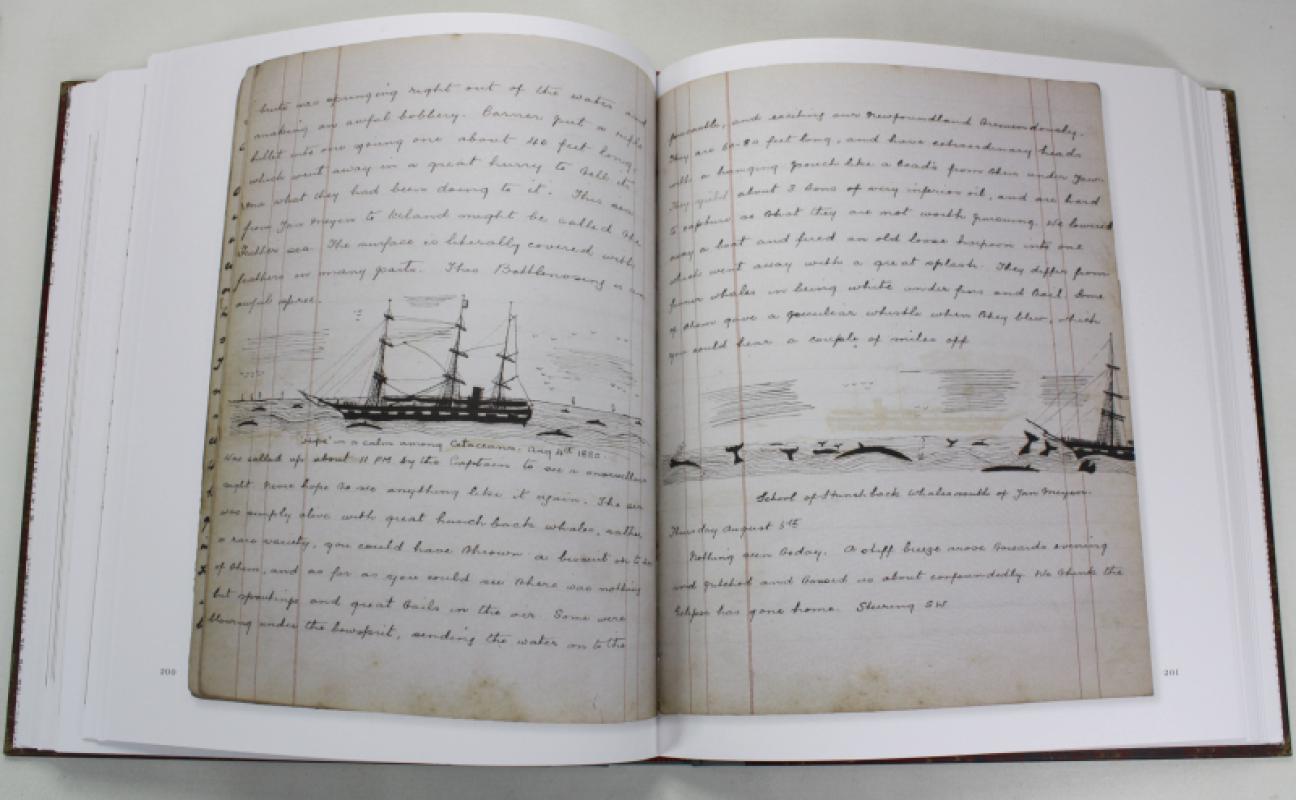 brute was springing right out of the water and
making an awful bobbery. Carner put a rifle
bullet into one young one about 40 feet long,
which went away in a great hurry to tell its
ma what they had been doing to it. This sea
from Jan Meyen to Iceland might be called the
Feather sea. The surface is literally covered with
feathers in many parts. This Bottlenosing is an
awful spree.
'Hope' in a calm among Cetaceans. Aug 4th 1880.
Was called up about 11 PM by the Captain to see a marvellous
sight. Never hope to see anything like it again. The sea
was simply alive with great hunchback whales, rather
a rare variety, you could have thrown a biscuit on to
of them, and as far as you could see there was nothing
but spoutings and great tails in the air. Some were
blowing under the bowsprit, sending the water on to the
200
forecastle, and exciting our Newfoundland tremendously.
They are 60-80 feet long, and have extraordinary heads
with a hanging pouch like a toad's from their under jaw.
They yield about 3 tons of very inferior oil, and are hard
to capture so that they are not worth pursuing. We lowered
away a boat and fired an old loose harpoon into one
which went away with a great splash. They differ from
finner whales in being white under fins and tail. Some
of them gave a peculiar whistle when they blew, which
you could hear a couple of miles off
School of Hunchback Whales south of Jan Meyen.
Thursday August 5th
Nothing seen today. A stiff breeze rose towards evening
and pitched and tossed us about confoundedly. We think the
Eclipse has gone home. Steering SW
201